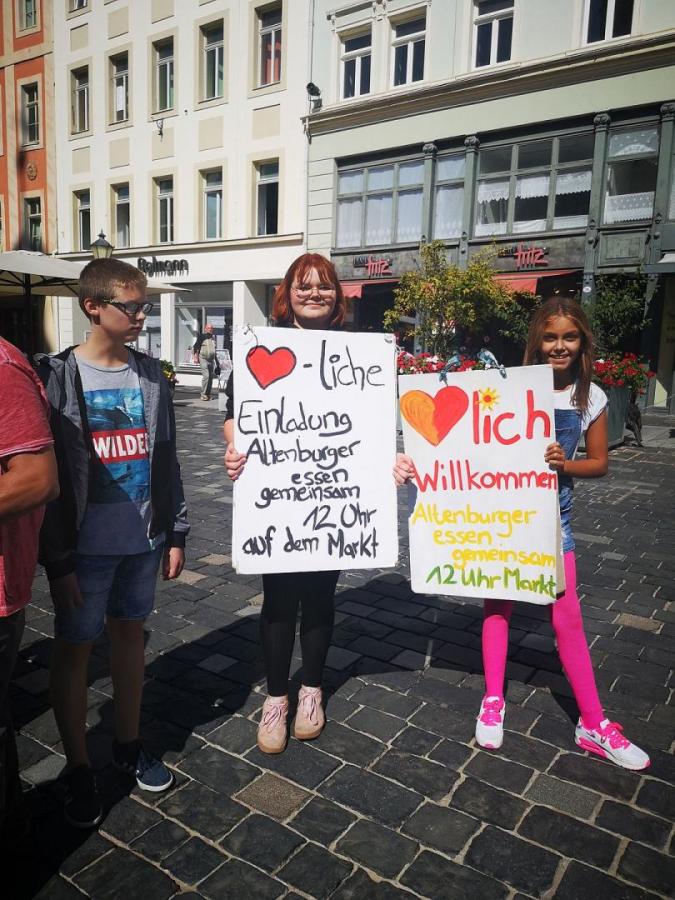 Reimann
fritz
fritz
WILDER
❤-liche
Einladung
Altenburger
essen
gemeinsam
12 Uhr
auf dem Markt
❤lich
Willkommen
Altenburger
essen
gemeinsam
12 Uhr Markt